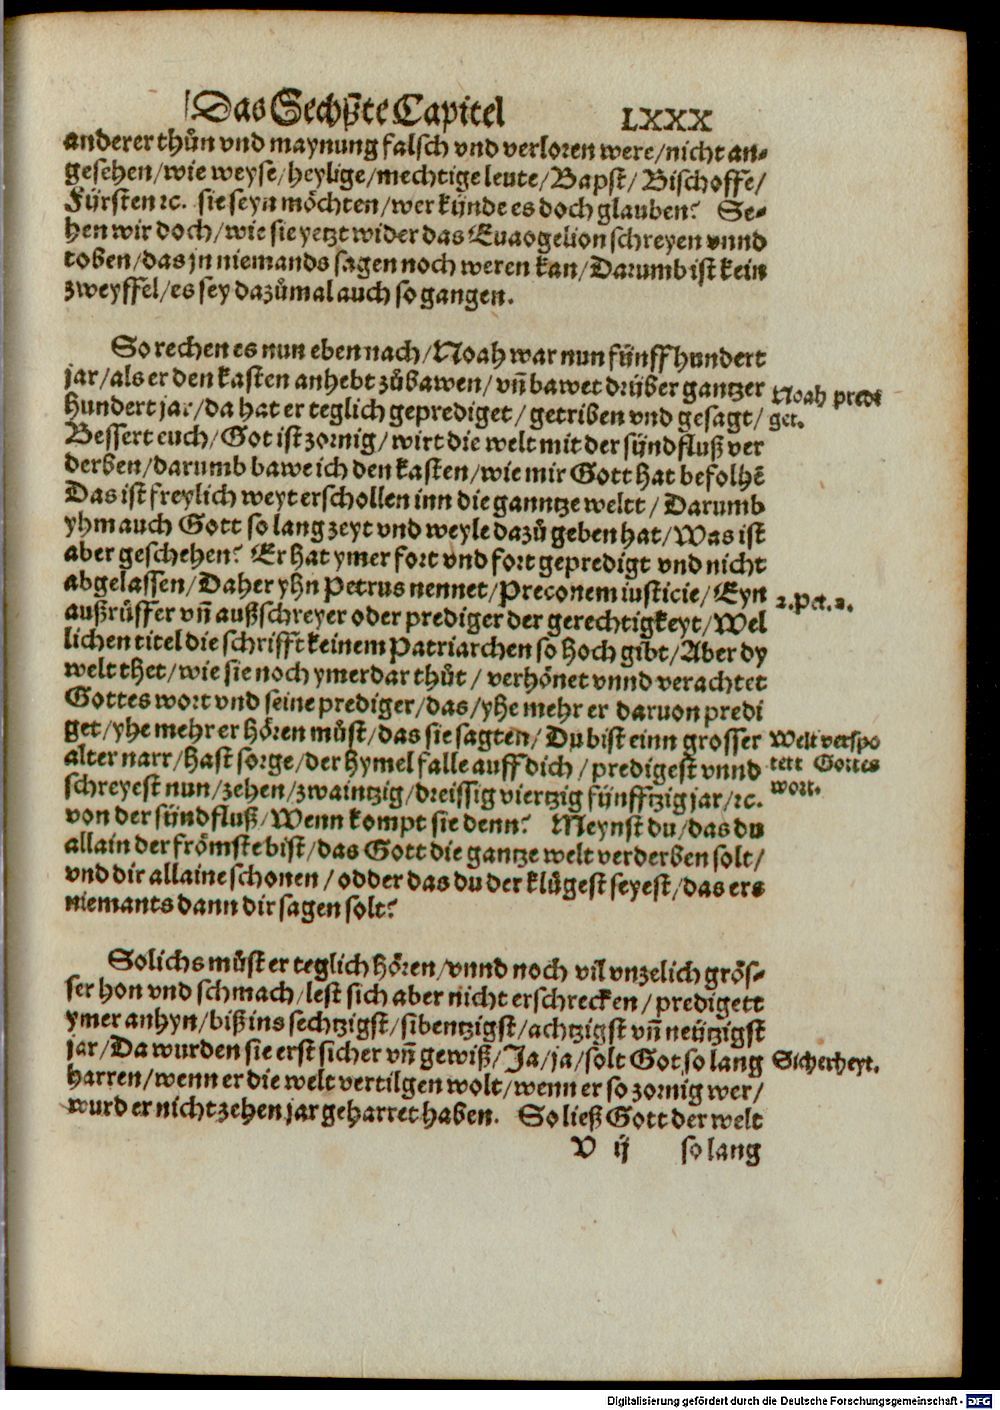 Das Sechßte Capitel LXXX
anderer thůn vnd maynung falsch vnd verloren were/nicht an-
gesehen/wie weyse/heylige/mechtige leute/Bapst/Bischoffe/
Fürsten ꝛc. sie seyn möchten/wer künde es doch glauben? Se-
hen wir doch/wie sie yetzt wider das Euaogelion schreyen vnnd
toben/das jn niemands sagen noch weren kan/Darumb ist kein
zweyffel/es sey dazůmal auch so gangen.
So rechen es nun eben nach/Noah war nun fünff hundert
jar/als er den kasten anhebt zůbawen/vñ bawet drüber gantzer
hundert jar/da hat er teglich geprediget/getriben vnd gesagt/
Noah predi
get.
Bessert euch/Got ist zornig/wirt die welt mit der sündfluß ver
derben/darumb bawe ich den kasten/wie mir Gott hat befolhẽ
Das ist freylich weyt erschollen inn die ganntze weltt/Darumb
yhm auch Gott so lang zeyt vnd weyle dazů geben hat/Was ist
aber geschehen? Er hat ymer fort vnd fort gepredigt vnd nicht
abgelassen/Daher yhn Petrus nennet/Preconem iusticie/Eyn
2.Pet.2.
außrůffer vñ außschreyer oder prediger der gerechtigkeyt/Wel
lichen titel die schrifft keinem Patriarchen so hoch gibt/Aber dy
welt thet/wie sie noch ymerdar thůt/verhönet vnnd verachtet
Gottes wort vnd seine prediger/das/yhe mehr er daruon predi
get/yhe mehr er hören můst/das sie sagten/Du bist einn grosser
alter narr/hast sorge/der hymel falle auff dich/predigest vnnd
schreyest nun/zehen/zwaintzig/dreissig viertzig fünfftzig jar/ꝛc.
Welt verspo
tett Gottes
wort.
von der sündfluß/Wenn kompt sie denn? Meynst du/das du
allain der frömste bist/das Gott die gantze welt verderben solt/
vnd dir allaine schonen/odder das du der klůgest seyest/das ers
niemants dann dir sagen solt?
Solichs můst er teglich hören/vnnd noch vil vnzelich grös-
ser hon vnd schmach/lest sich aber nicht erschrecken/predigett
ymer anhyn/biß ins sechtzigst/sibentzigst/achtzigst vñ neützigst
jar/Da wurden sie erst sicher vñ gewiß/Ja/ja/solt Got so lang
Sicherheyt.
harren/wenn er die welt vertilgen wolt/wenn er so zornig wer/
wurd er nicht zehen jar geharret haben. So ließ Gott der welt
V ij so lang
Digitalisierung gefördert durch die Deutsche Forschungsgemeinschaft - DFG